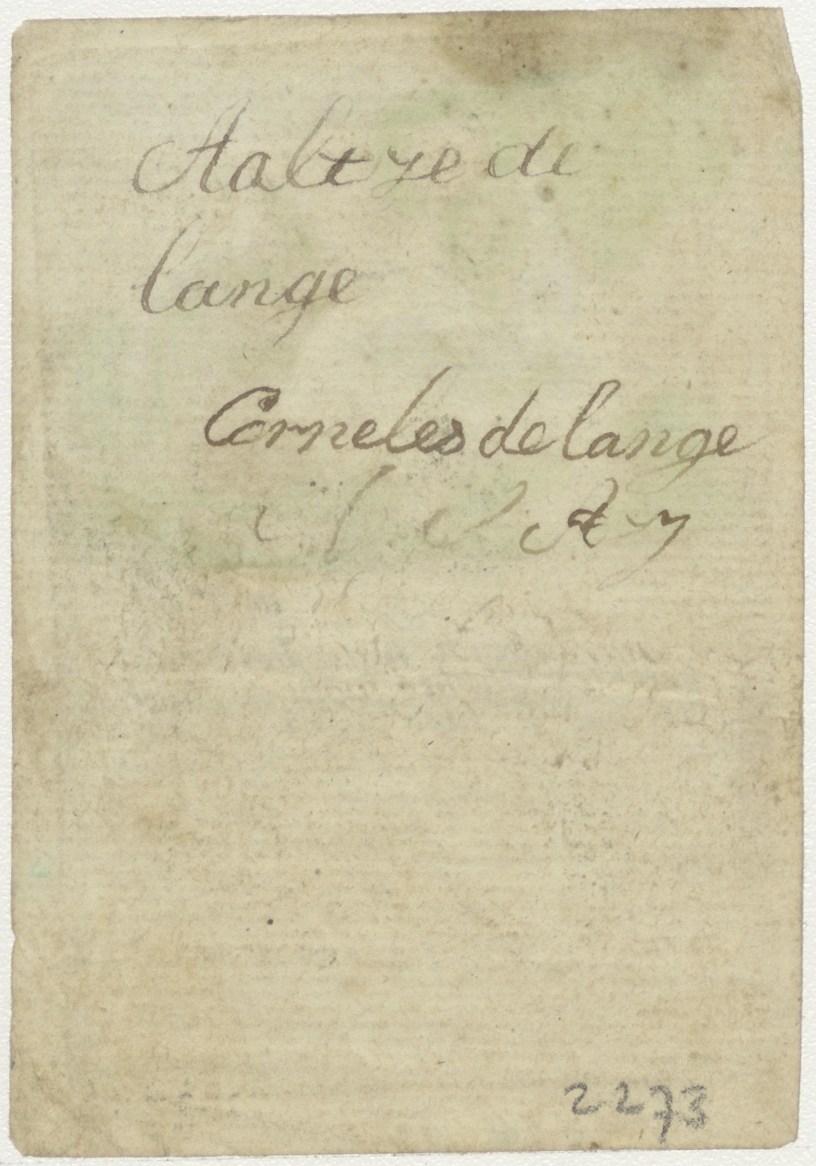 Aaltye de
lange
Corneles de lange
2273